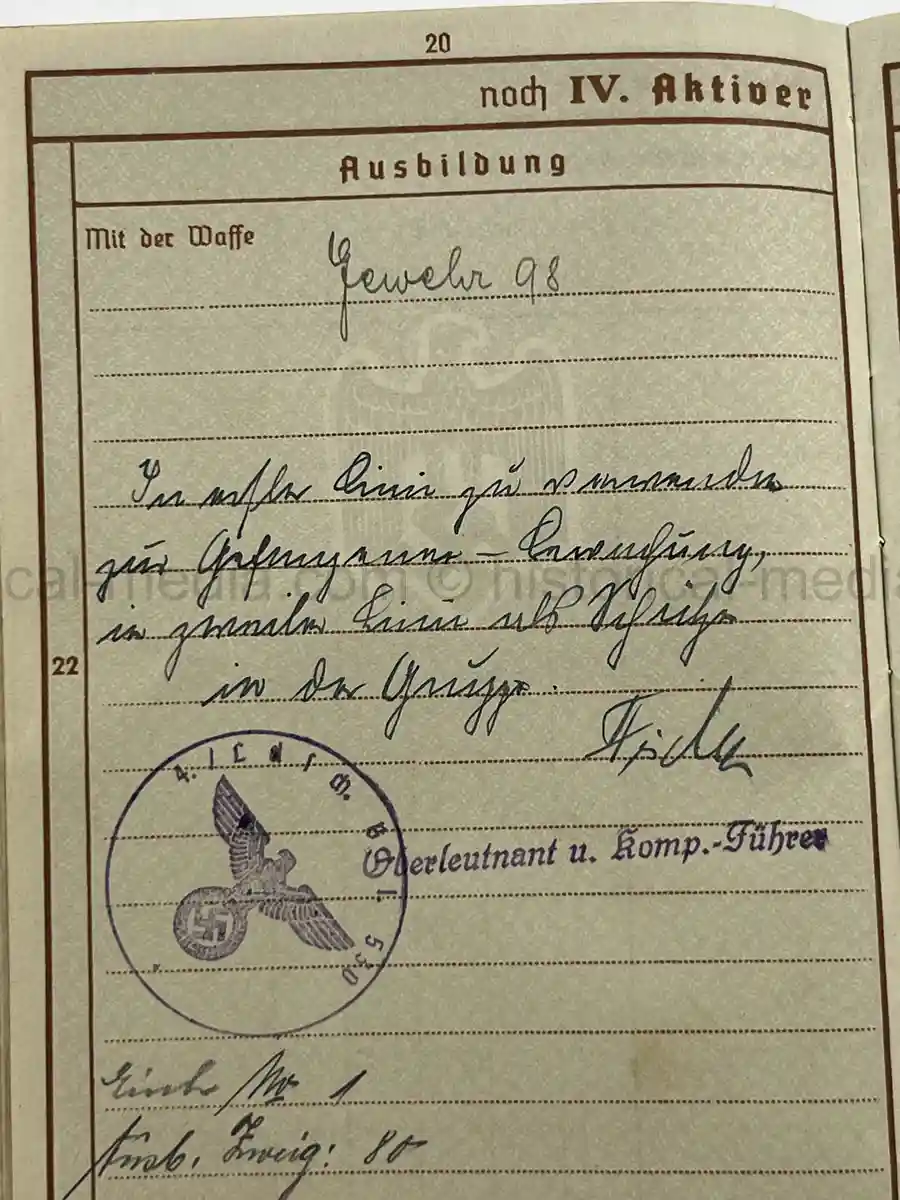 20
noch IV. Aktiver
Ausbildung
Mit der Waffe
Gewehr 98
In erster Linie zu verwenden
zur Gefangenen-Bewachung,
in zweiter Linie als Schütze
22
in der Gruppe.
4. / L d s c h. B t l. 530
Oberleutnant u. Komp.-Führer
cal-media.com © historical-media
Nr 1
Ausb. Zweig: 80